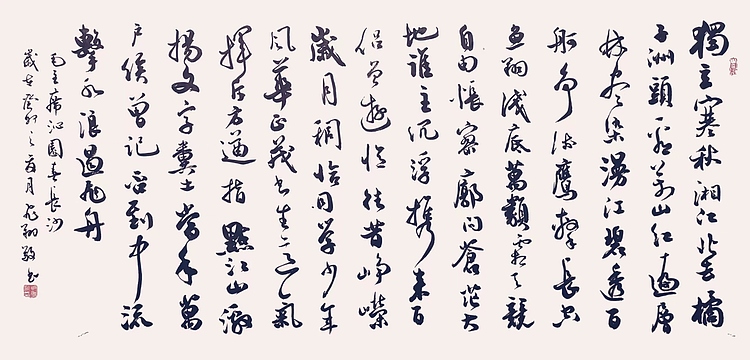 獨立寒秋湘江北去橘
子洲頭看萬山紅遍層
林盡染漫江碧透百
舸争流鷹擊長空
魚翔淺底萬類霜天競
自由悵寥廓問蒼茫大
地誰主沉浮携來百
侣曾遊憶往昔崢嶸
歲月稠恰同學少年
風華正茂書生意氣
揮斥方遒指點江山激
揚文字糞土當年萬
户侯曾記否到中流
擊水浪遏飛舟
毛主席沁園春長沙
歲在癸卯之夏月飛翔敬書